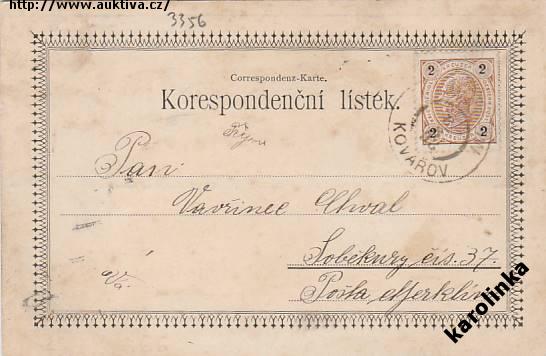 http://www.auktiva.cz/
3356
Correspondenz-Karte.
Korespondenční lístek.
2 2
2 2
KOVÁŘOV
Pan
Vavřinec Chval
Soběkury čís. 37.
Pošta Merklín
karolinka